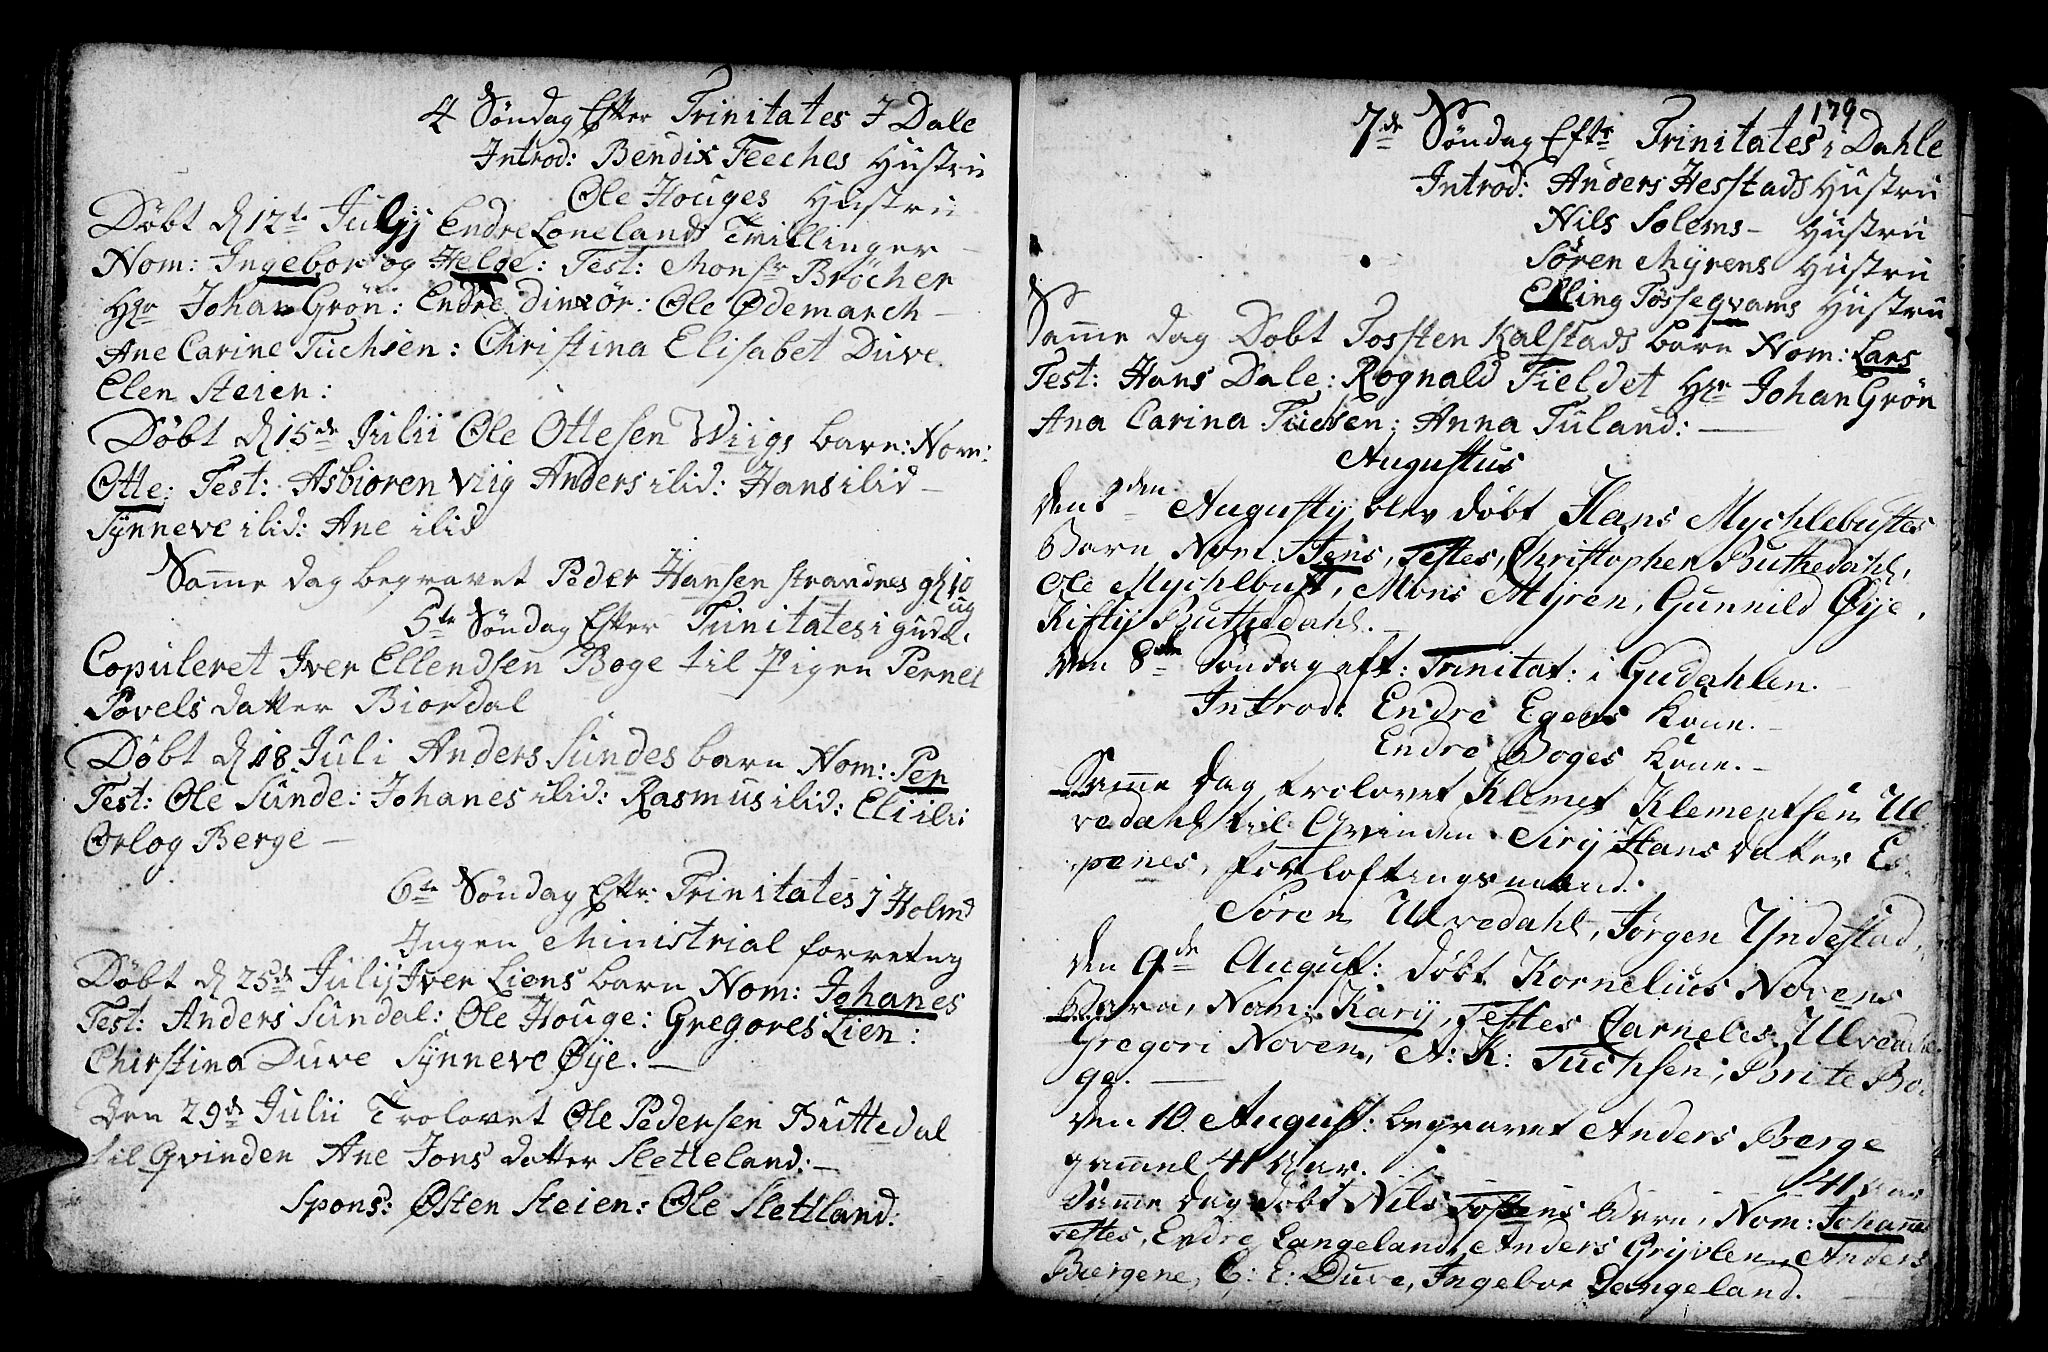 4 Søndag Efter Trinitates J Dale
Introd: Bendix Feeches Hustru
Ole Houges Hustru
Døbt d 12te Julij Endre Lonelands Tvillinger
Nom: Ingebor og Helge: Test: Monsr Bröcher
Hr Johan Grön: Endre : Ole Ødemarch –
Ane Carine Tuchsen: Christina Elisabet Duve
Elen Steien:
Døbt d 15de Julii Ole Ottesen Wiigs barn: Nom:
Otte: Test: Asbioren Viig Anders ilid: Hans ilid –
Synneve ilid: Ane ilid
Samme dag begravet Peder Hansen strandnes gl 10
ug
5te Søndag Efter Trinitates i gudal.
Copuleret Iver Ellendsen Boge til Pigen Pernel
Povels datter Biordal
Døbt d 18 Juli Anders Sundes barn Nom: Per
Test: Ole Sunde: Johanes ilid: Rasmus ilid: Eli ili:
Orlog Berge –
6te Søndag Eftr: Trinitates J Holmd
Ingen Ministrial forretng
Døbt d 25de Julij Iver Liens barn Nom: Johanes
Test: Anders Sundal: Ole Houge: Gregores Lien:
Chirstina Duve Synneve Øye. –
Den 29de Julii Trolovet Ole Pedersen Buttedal
til Qvinden Ane Jons datter Sletteland: –
Spons: Østen Steien: Ole Slettland:
179
7de Søndag Eftr Trinitates i Dahle
Introd: Anders Hesstads Hustru
Nils Solems – Hustru
Søren Myrens Hustru
Elling Tossegvams Hustru
Samme dag Døbt Tossten Kalstads barn Nom: Lars
Test: Hans Dale: Rognald Fieldet Hr Johan Grön
Ana Carina Tuchsen: Anna Tuland: –
Augustus
Den 2den Augustij blev døbt Hans Mychlebustes
Barn Nom Stens, Testes, Christopher Buthedahl,
Ole Mychlbust, Mons Myren, Gunnild Øije,
Kistij Buthedahl. –
Den 8de Søndag eft: Trinitat: i Gudahlen. –
Introd: Endre Egens Kone. –
Endre Boges Kone. –
Samme Dag trolovet Klemet Klementsen Ul-
vedahl til Qvinden Sirij Hans datter Es-
penes, forloftingsmænd.
Søren Ulvedahl, Jørgen Yndestad,
Den 9de August: døbt Kornelius Novens
Barn, Nom: Karij, Testes Carneles Ulvedahl
Gregori Noven, A: K: Tuchsen, Brite Bo-
ge. –
Den 10 August: begravet Anders Berge
gammel 41 Aar.
41 Aar
Samme Dag døbt Nils Tostens Barn, Nom: Johann
Testes, Endre Langeland, Anders Grijtlen, Anders
Bergene, C: E: Duve, Ingebor Langeland.